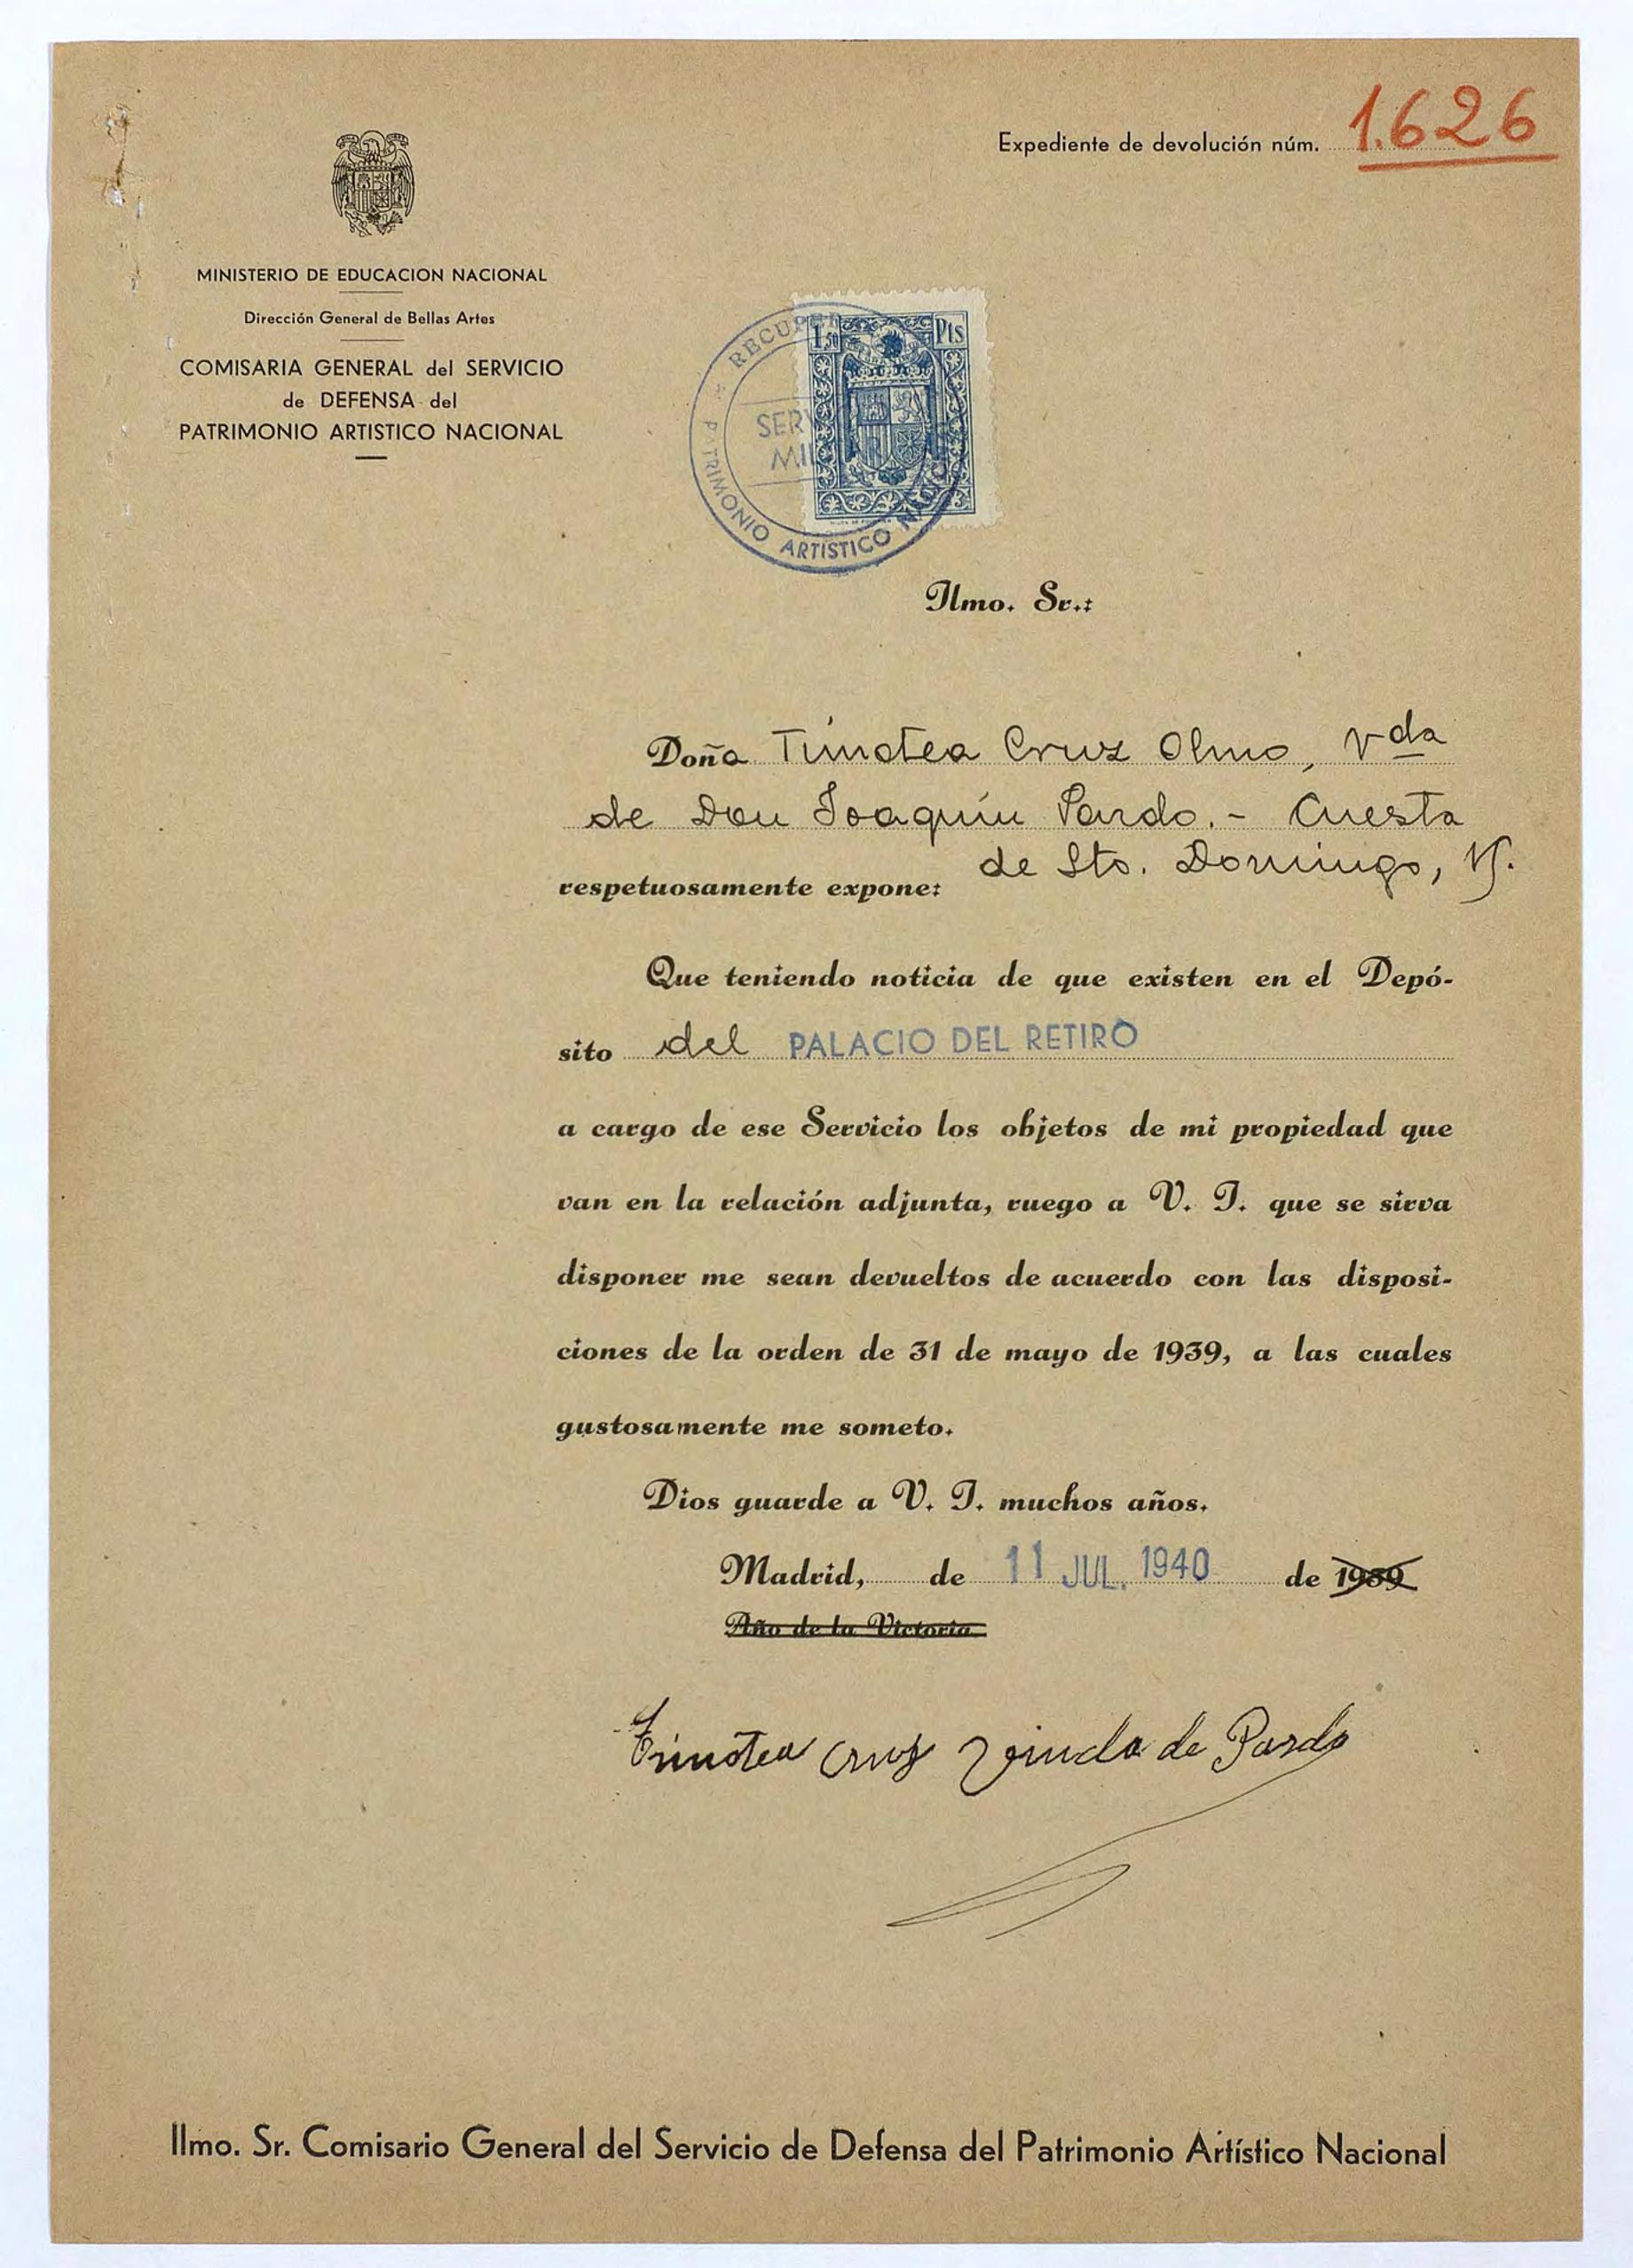 Expediente de devolución núm. 1.626
MINISTERIO DE EDUCACION NACIONAL
Dirección General de Bellas Artes
COMISARIA GENERAL del SERVICIO
de DEFENSA del
PATRIMONIO ARTISTICO NACIONAL
RECUPE
PATRIMONIO ARTÍSTICO NACIO
SERV
MIL
1,50 Pts
Ilmo. Sr.:
Doña Timotea Cruz Olmo, Vda
de Don Joaquín Pardo.- Cuesta
de Sto. Domingo,
respetuosamente expone:
Que teniendo noticia de que existen en el Depó-
sito del PALACIO DEL RETIRO
a cargo de ese Servicio los objetos de mi propiedad que
van en la relación adjunta, ruego a V. I. que se sirva
disponer me sean devueltos de acuerdo con las disposi-
ciones de la orden de 31 de mayo de 1939, a las cuales
gustosamente me someto.
Dios guarde a V. I. muchos años.
Madrid, de 11 JUL. 1940 de 1939
Año de la Victoria
Timotea Cruz Viuda de Pardo
Ilmo. Sr. Comisario General del Servicio de Defensa del Patrimonio Artístico Nacional